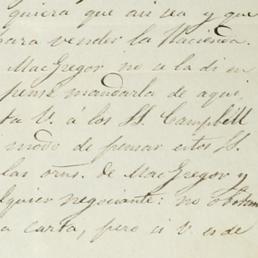 quiera que asi sea y que
para vender la Hacienda.
MacGregor no se la di n
pense mandarla de aque
ta V. a los SS. Campbell
modo de pensar estos SS.
las orns. de MacGregor y
lquier negociante: no obstan
a carta, pero si V. es de